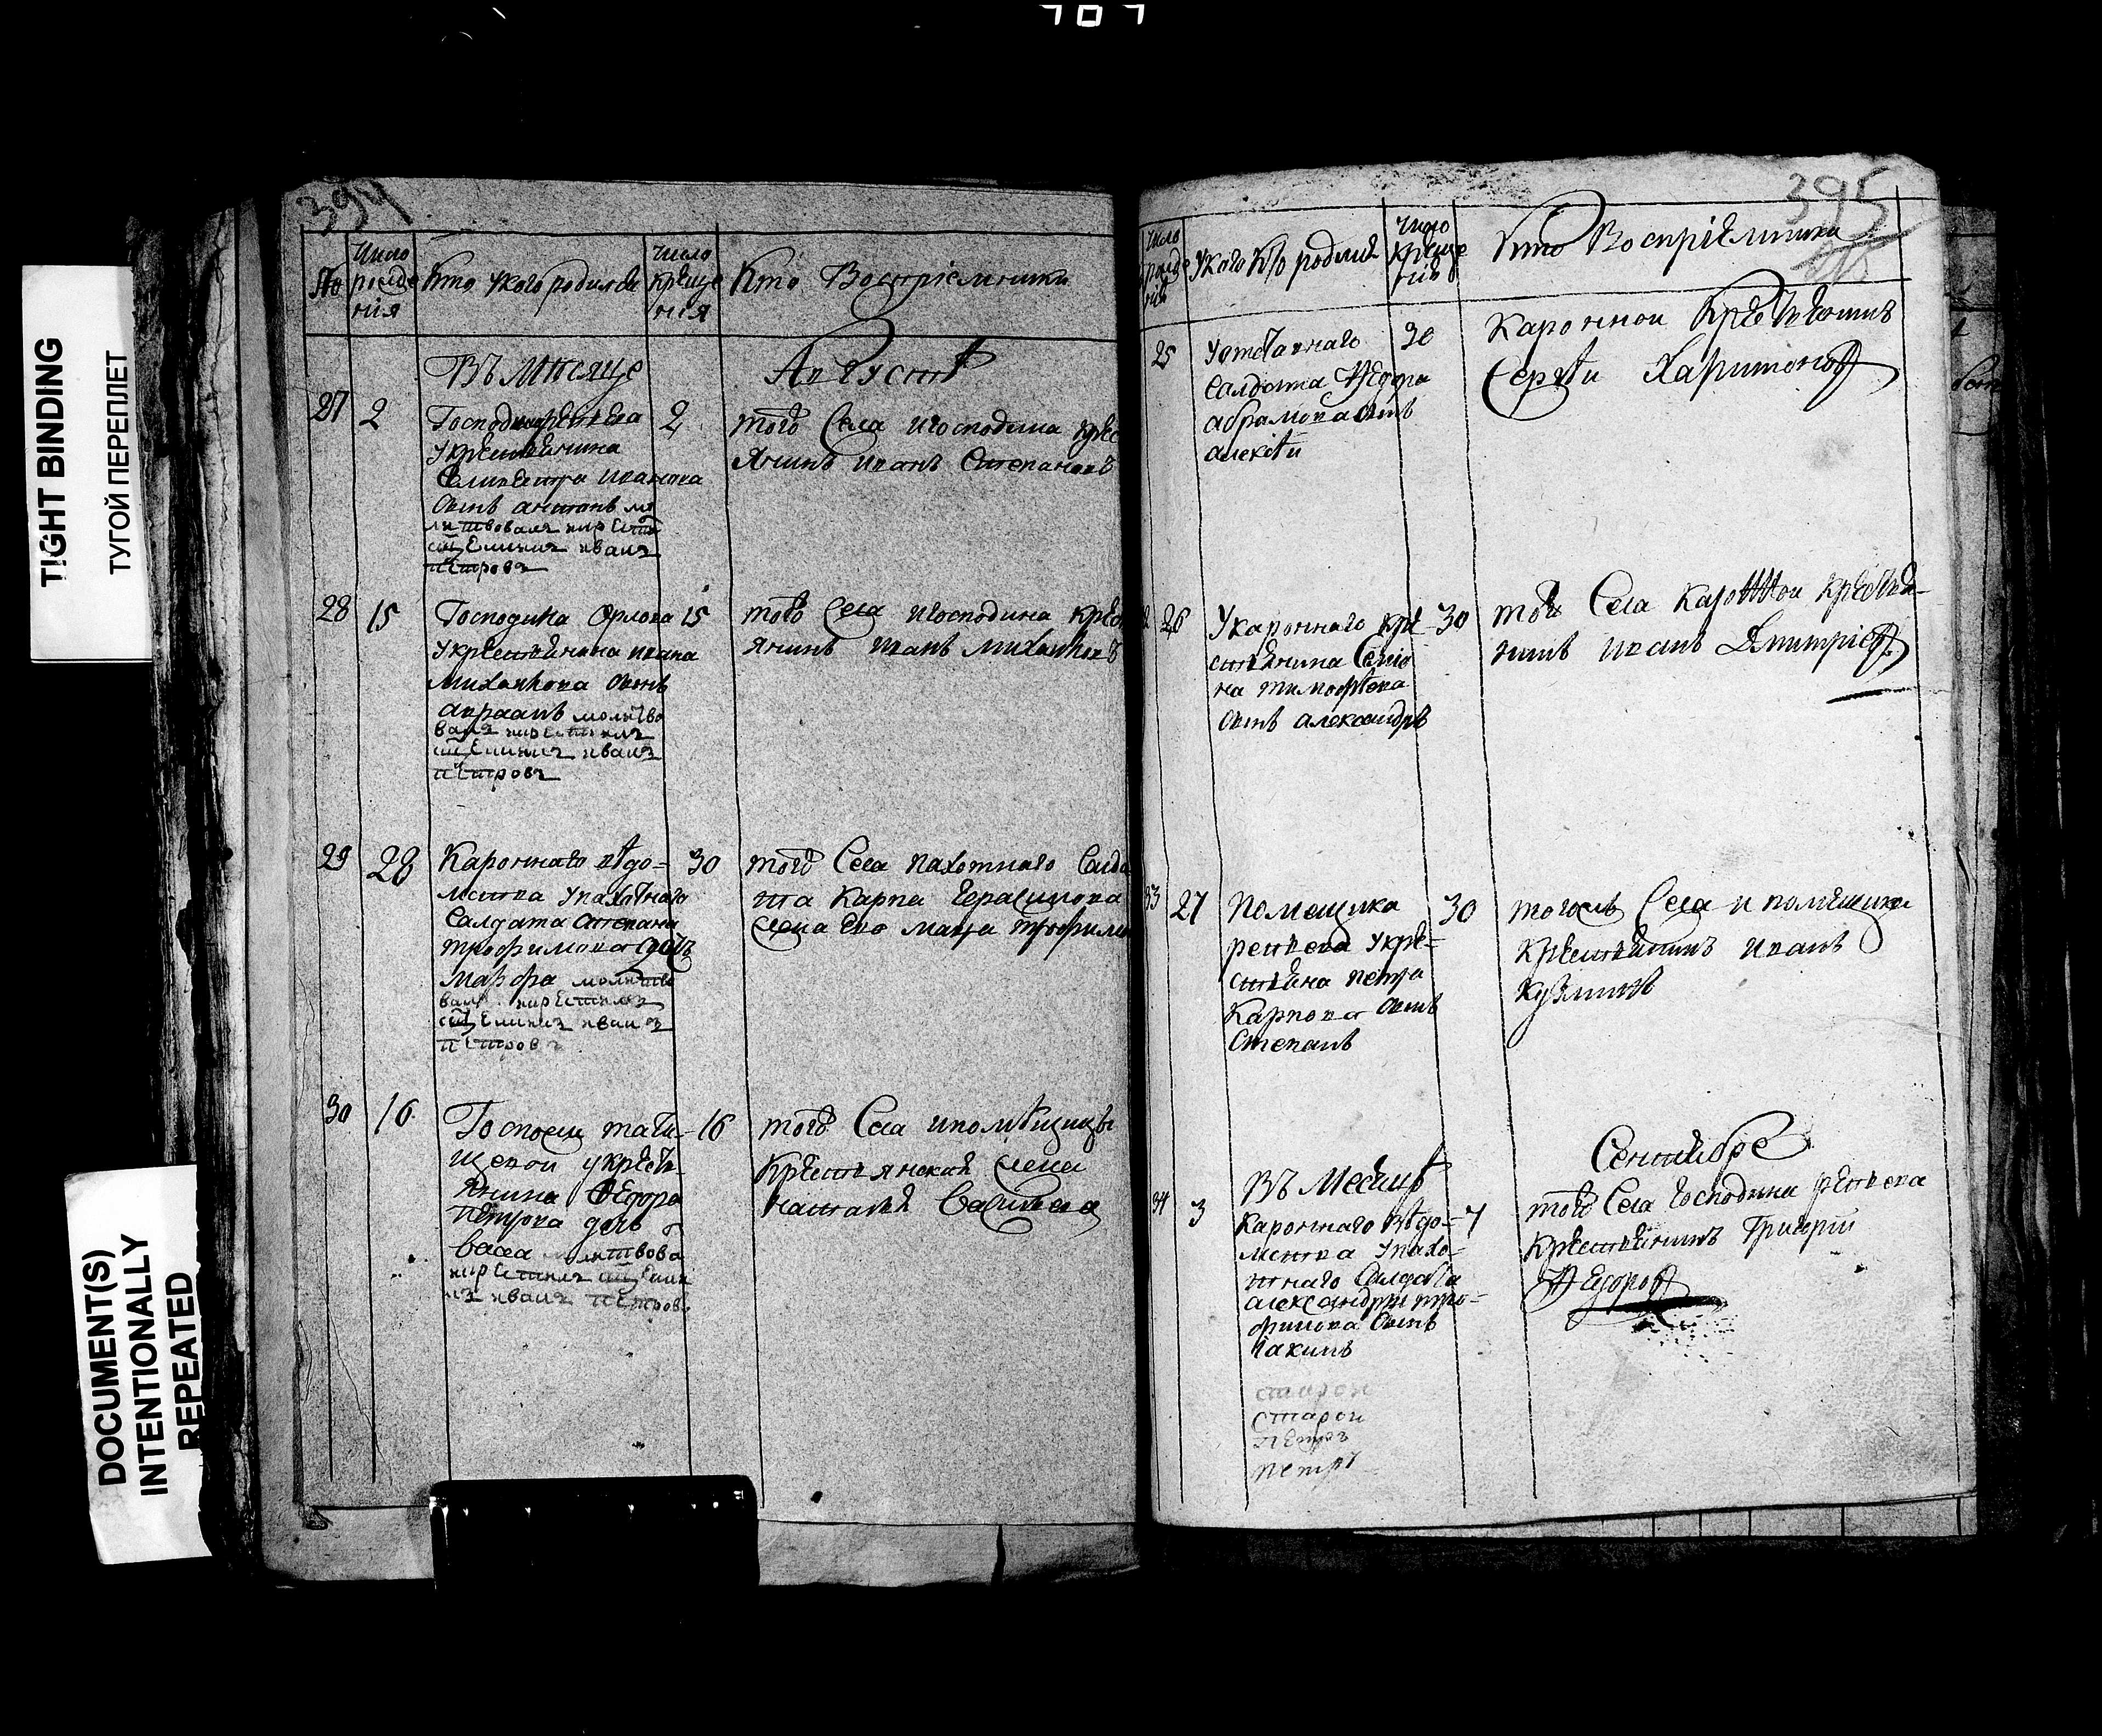 707
TIGHT BINDING
ТУГОЙ ПЕРЕПЛЕТ
DOCUMENT(S)
INTENTIONALLY
REPEATED
394
Число рожде нія
Кто укого родился
Число Креще нія
Кто Воспріемники
Въ Мѣсяце Августѣ
27 2
Господина
укрестьянина
Селивестра Иванова
сынъ антонъ мо
литвовалъ икрестил
сщенникъ иванъ
петровъ
2
того Села игосподина крес
янинъ иванъ Степановъ
28 15
Господина Орлова
укрестьянина ивана
Михайлова сынъ
авраамъ молитво
валъ икрестилъ
сщенникъ иванъ
петровъ
15
того Села игосподина крес
янинъ иванъ михайловъ
29 28
Кароннаго вѣдо=
мства упахотнаго
Салдата степана
трофимова дочь
марфа молитво
валъ икрестилъ
сщенникъ иванъ
петровъ
30
того Села пахотнаго Салда
та Карпа Герасимова
30 16
Госпожи тати-
щевой укресть
янина Федора
петрова дочь
икрестилъ сщенник
ъ иванъ петровъ
16
того Села ипомѣщицы
Крестьянская жена
наталья Васильева
395
Число рожде нія
Укого кто родился
Число Креще нія
Кто Воспріемники
25
Уотставнаго
Салдата Федора
абрамова сынъ
алексѣи
30
Каронной Крестьянинъ
Сергѣи Харитоновъ
26
Укароннаго кре-
стьянина Семіо
на тимофѣева
сынъ александръ
30
того Села каронной крестья-
нинъ иванъ Дмитріевъ
33 27
Помещика
ретвева укре=
стьяна петра
Карпова сынъ
Степанъ
30
тогожъ Села и помещика
Крестьянинъ иванъ
Кузминъ
Въ Месяцѣ Сентябре
34 3
Кароннаго вѣдо=
мства упахо=
тнаго Салдата
александры тро=
фимова сынъ
іакимъ
7
того Села господина ретвева
Крестьянинъ Григорій
Федоровъ
старои
старои
петръ
петръ